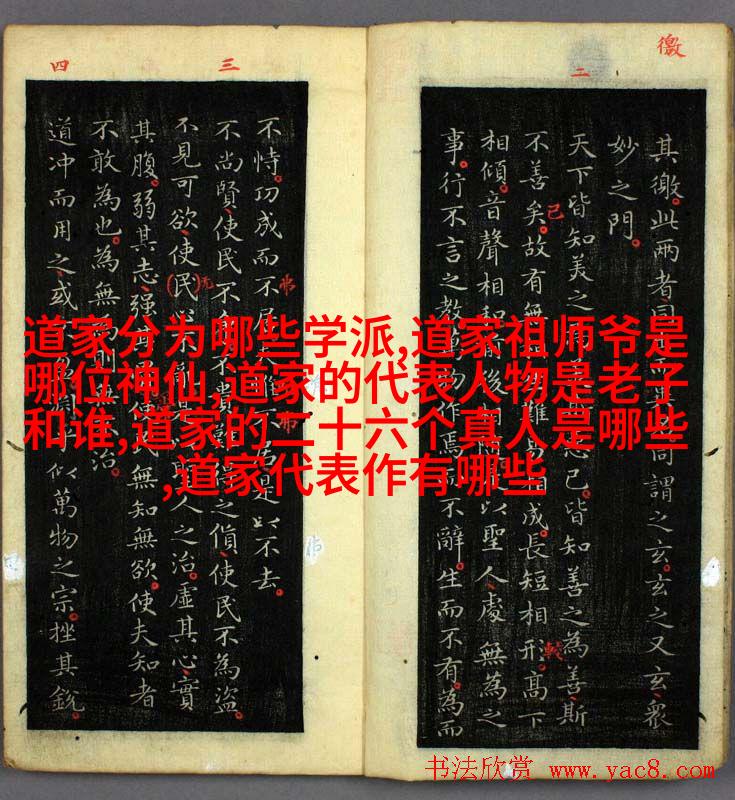 道家分为哪些学派,道家祖师爷是
哪位神仙,道家的代表人物是老子
和谁,道家的二十六个真人是哪些
,道家代表作有哪些
徼
二
其徼。此两者同謂之玄。玄之又玄。衆
妙之門。
天下皆知美之已。皆知善之為善斯
不善矣。故有無難易成。長短相形。高下
相傾。音聲相和後以聖人處無為之
事。行不言之教作焉不辭。生而不有。為而
三
四
不恃。功成而不居是以不去。
不尚賢。使民不不貴之貨。使民不為盜。
不見可欲。使民人之治。虛其心。實
其腹。弱其志。强使無知無欲。使夫知者
不敢為也。為無則治
道冲而用之。或似萬物之宗。挫其銳。
书法欣赏 www.yac8.com